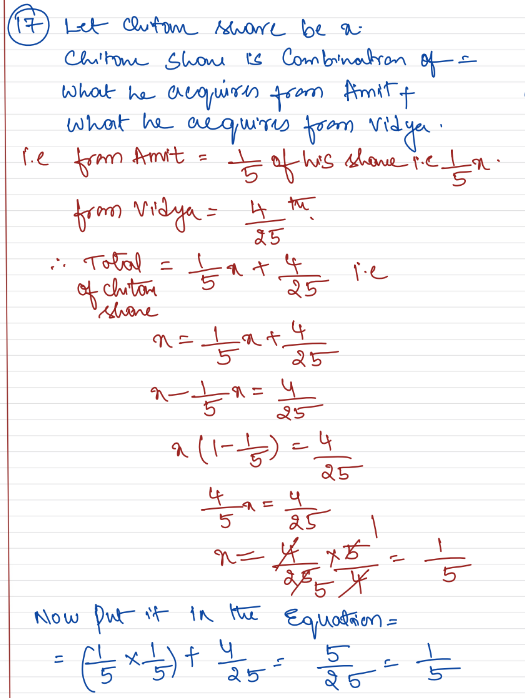 17) Let chitan share be x.
Chitans share is Combination of =
what he acquires from Amit +
what he acquires from Vidya.
i.e from Amit = 1/5 of his share i.e 1/5 x.
from Vidya = 4/25 th.
∴ Total of chitan share = 1/5 x + 4/25 i.e
x = 1/5 x + 4/25
x - 1/5 x = 4/25
x (1 - 1/5) = 4/25
4/5 x = 4/25
x = 4/25 5 × 5/4 1 = 1/5
Now put it in the Equation =
= (1/5 × 1/5) + 4/25 = 5/25 = 1/5